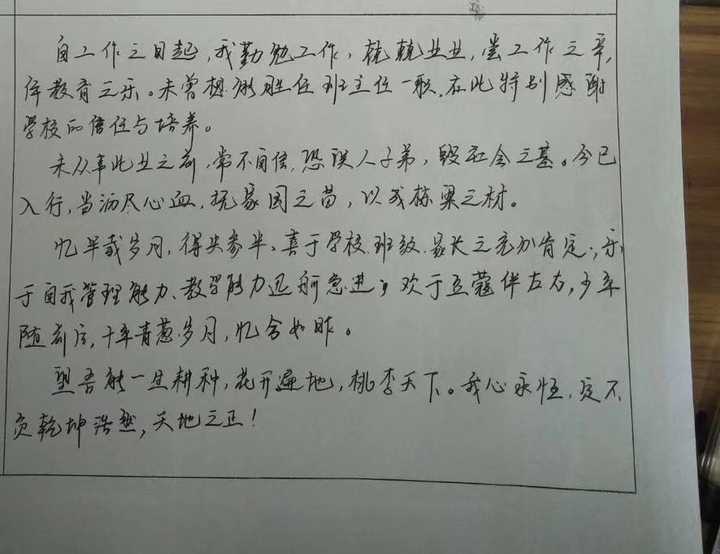 自工作之日起,我勤勉工作,兢兢业业,尝工作之辛,
伴教育之乐。未曾想能胜任班主任一职,在此特别感谢
学校的信任与培养。
未从事此业之前,常不自信,恐误人子弟,毁社会之基。今已
入行,当沥尽心血,抚家国之苗,以成栋梁之材。
忆半载岁月,得失参半。喜于学校、班级、家长之充分肯定;乐
于自我管理能力、教学能力迅所急进;欢于豆蔻伴左右,少年
随前后,十年青葱岁月,忆含如昨。
望吾能一生耕种,花开遍地,桃李天下。我心永恒,定不
负乾坤浩然,天地之正!